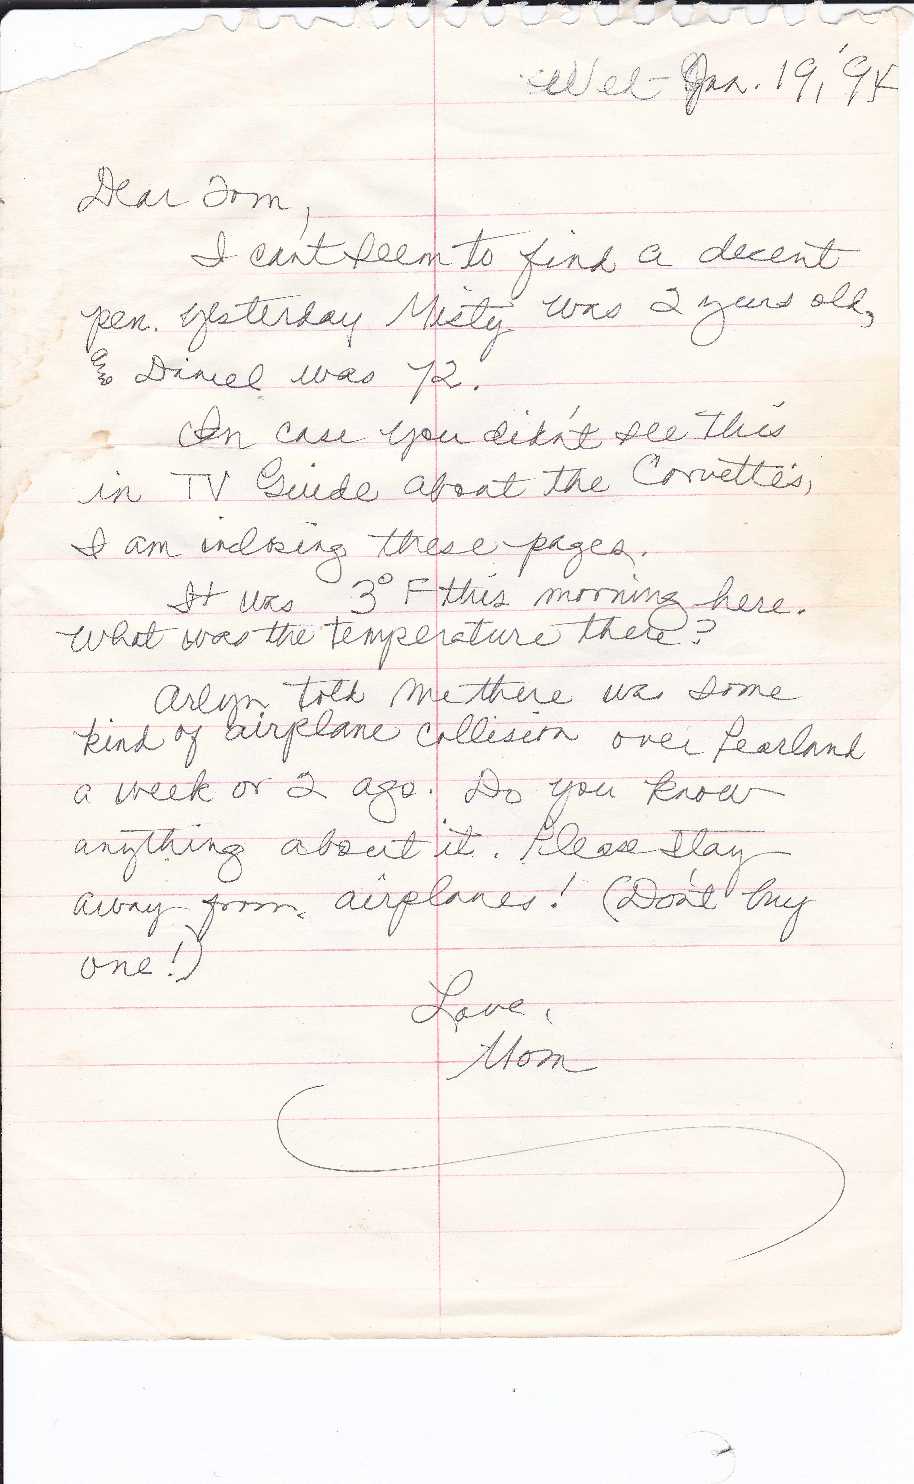 Wed - Jan. 19, '94
Dear Tom,
I can't seem to find a decent
pen. Yesterday Misty was 2 years old,
and Daniel was 72.
In case you didn't see this
in TV Guide about the Corvette's,
I am inclosing these pages.
It was 3° F this morning here.
What was the temperature there?
Arlyn told me there was some
kind of airplane collision over Pearland
a week or 2 ago. Do you know
anything about it. Please stay
away from airplanes! (Don't buy
one!)
Love,
Mom